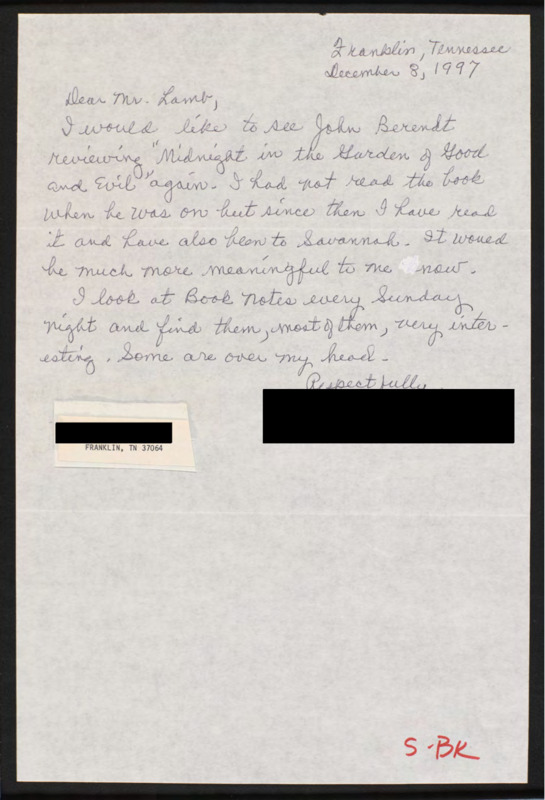 Franklin, Tennessee
December 8, 1997
Dear Mr. Lamb,
I would like to see John Berendt
reviewing "Midnight in the Garden of Good
and Evil" again. I had not read the book
when he was on but since then I have read
it and have also been to Savannah. It would
be much more meaningful to me now.
I look at Book Notes every Sunday
night and find them, most of them, very inter-
esting. Some are over my head.
Respectfully
FRANKLIN, TN 37064
S-BK